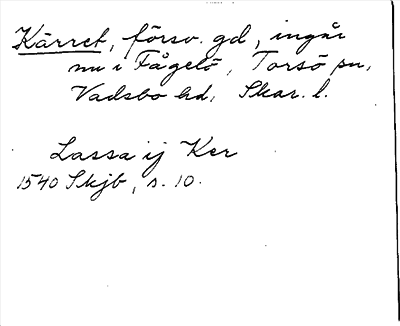 Kärret, försv. gd, ingår
nu i Fågelö, Torsö sn,
Vadsbo hd, Skar. l.
Lassa ij Ker
1540 Skjb, s. 10.